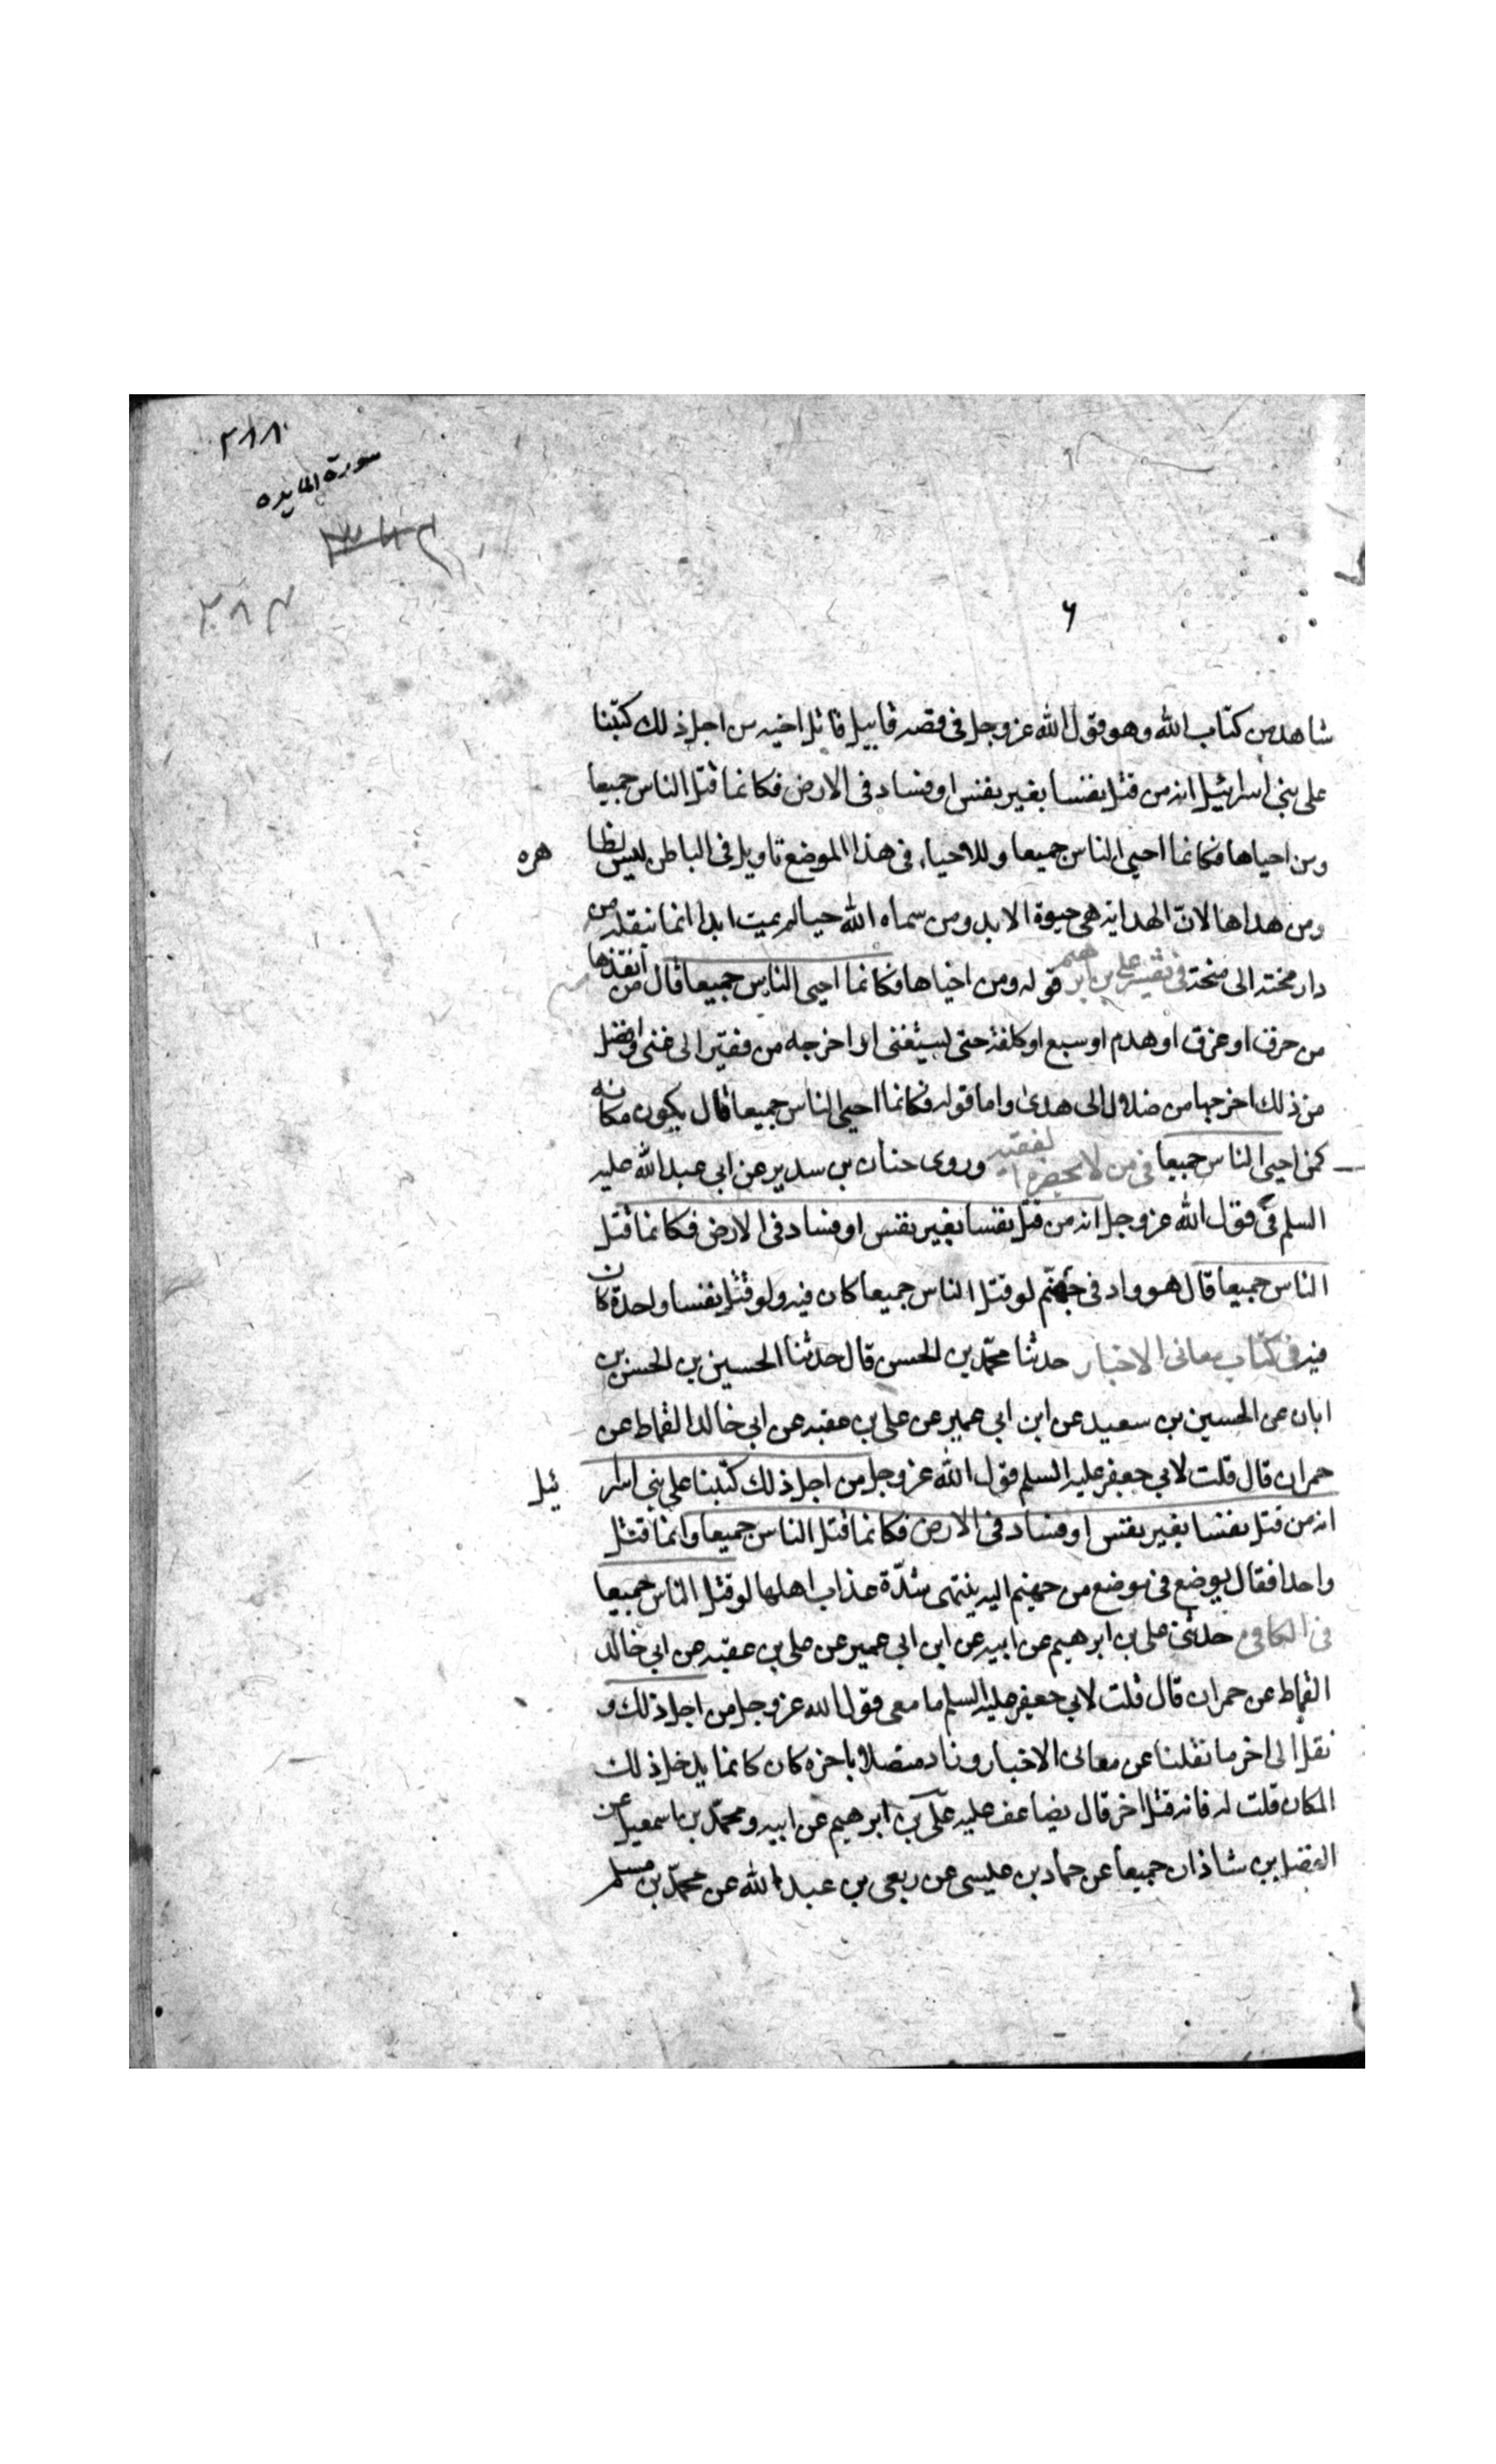 ٣٨٨
سورة المايده
٣٨٣
٦
شاهد من كتاب الله وهو قول الله عز وجل فى قصه قابيل قاتل اخيه من اجل ذلك كتبنا
على بنى اسرائيل انه من قتل نفسا بغير نفس او فساد فى الارض فكانما قتل الناس جميعا
ومن احياها فكانما احيى الناس جميعا وللاحياء فى هذا الموضع تاويل فى الباطن ليس لظا هره
ومن هداها لان الهدايه هى حيوة الابد ومن سماه الله حيا لم يمت ابدا انما ينقله من
دار محنته الى منحته فى تفسير على بن ابرهيم قوله ومن احياها فكانما احيى الناس جميعا قال من انقذها
من حرق او غرق او هدم او سبع او كلفه حتى يستغنى او اخرجه من فقر الى غنى وافضل
من ذلك اخرجها من ضلال الى هدى واما قوله فكانما احيى الناس جميعا قال يكون مكانه
كمن احيى الناس جميعا فى من لا يحضره الفقيه وروى حنان بن سدير عن ابى عبد الله عليه
السلم فى قول الله عز وجل انه من قتل نفسا بغير نفس او فساد فى الارض فكانما قتل
الناس جميعا قال هو واد فى جهنّم لو قتل الناس جميعا كان فيه ولو قتل نفسا واحدة كان
فيه فى كتاب معانى الاخبار حدثنا محمّد بن الحسن قال حدثنا الحسين بن الحسن بن
ابان عن الحسين بن سعيد عن ابن ابى عمير عن على بن عقبه عن ابى خالد القماط عن
حمران قال قلت لابي جعفر عليه السلم قول الله عز وجل من اجل ذلك كتبنا على بنى اسرا ئيل
انه من قتل نفسا بغير نفس او فساد فى الارض فكانما قتل الناس جميعا وانما قتل
واحدا فقال يوضع فى موضع من جهنم اليه ينتهى شدّة عذاب اهلها لو قتل الناس جميعا
فى الكافى حدثنى على بن ابرهيم عن ابيه عن ابن ابى عمير عن على بن عقبه عن ابى خالد
القماط عن حمران قال قلت لابي جعفر عليه السلم ما معى قول الله عز وجل من اجل ذلك و
نقل الى اخر ما نقلنا عن معانى الاخبار وزاد متصلا باخره كان كانما يدخل ذلك
المكان قلت له فانه قتل اخر قال يضاعف عليه على بن ابرهيم عن ابيه ومحمّد بن اسمعيل عن
الفضل بن شاذان جميعا عن حماد بن عليسى عن ربعى بن عبد الله عن محمّد بن مسلم